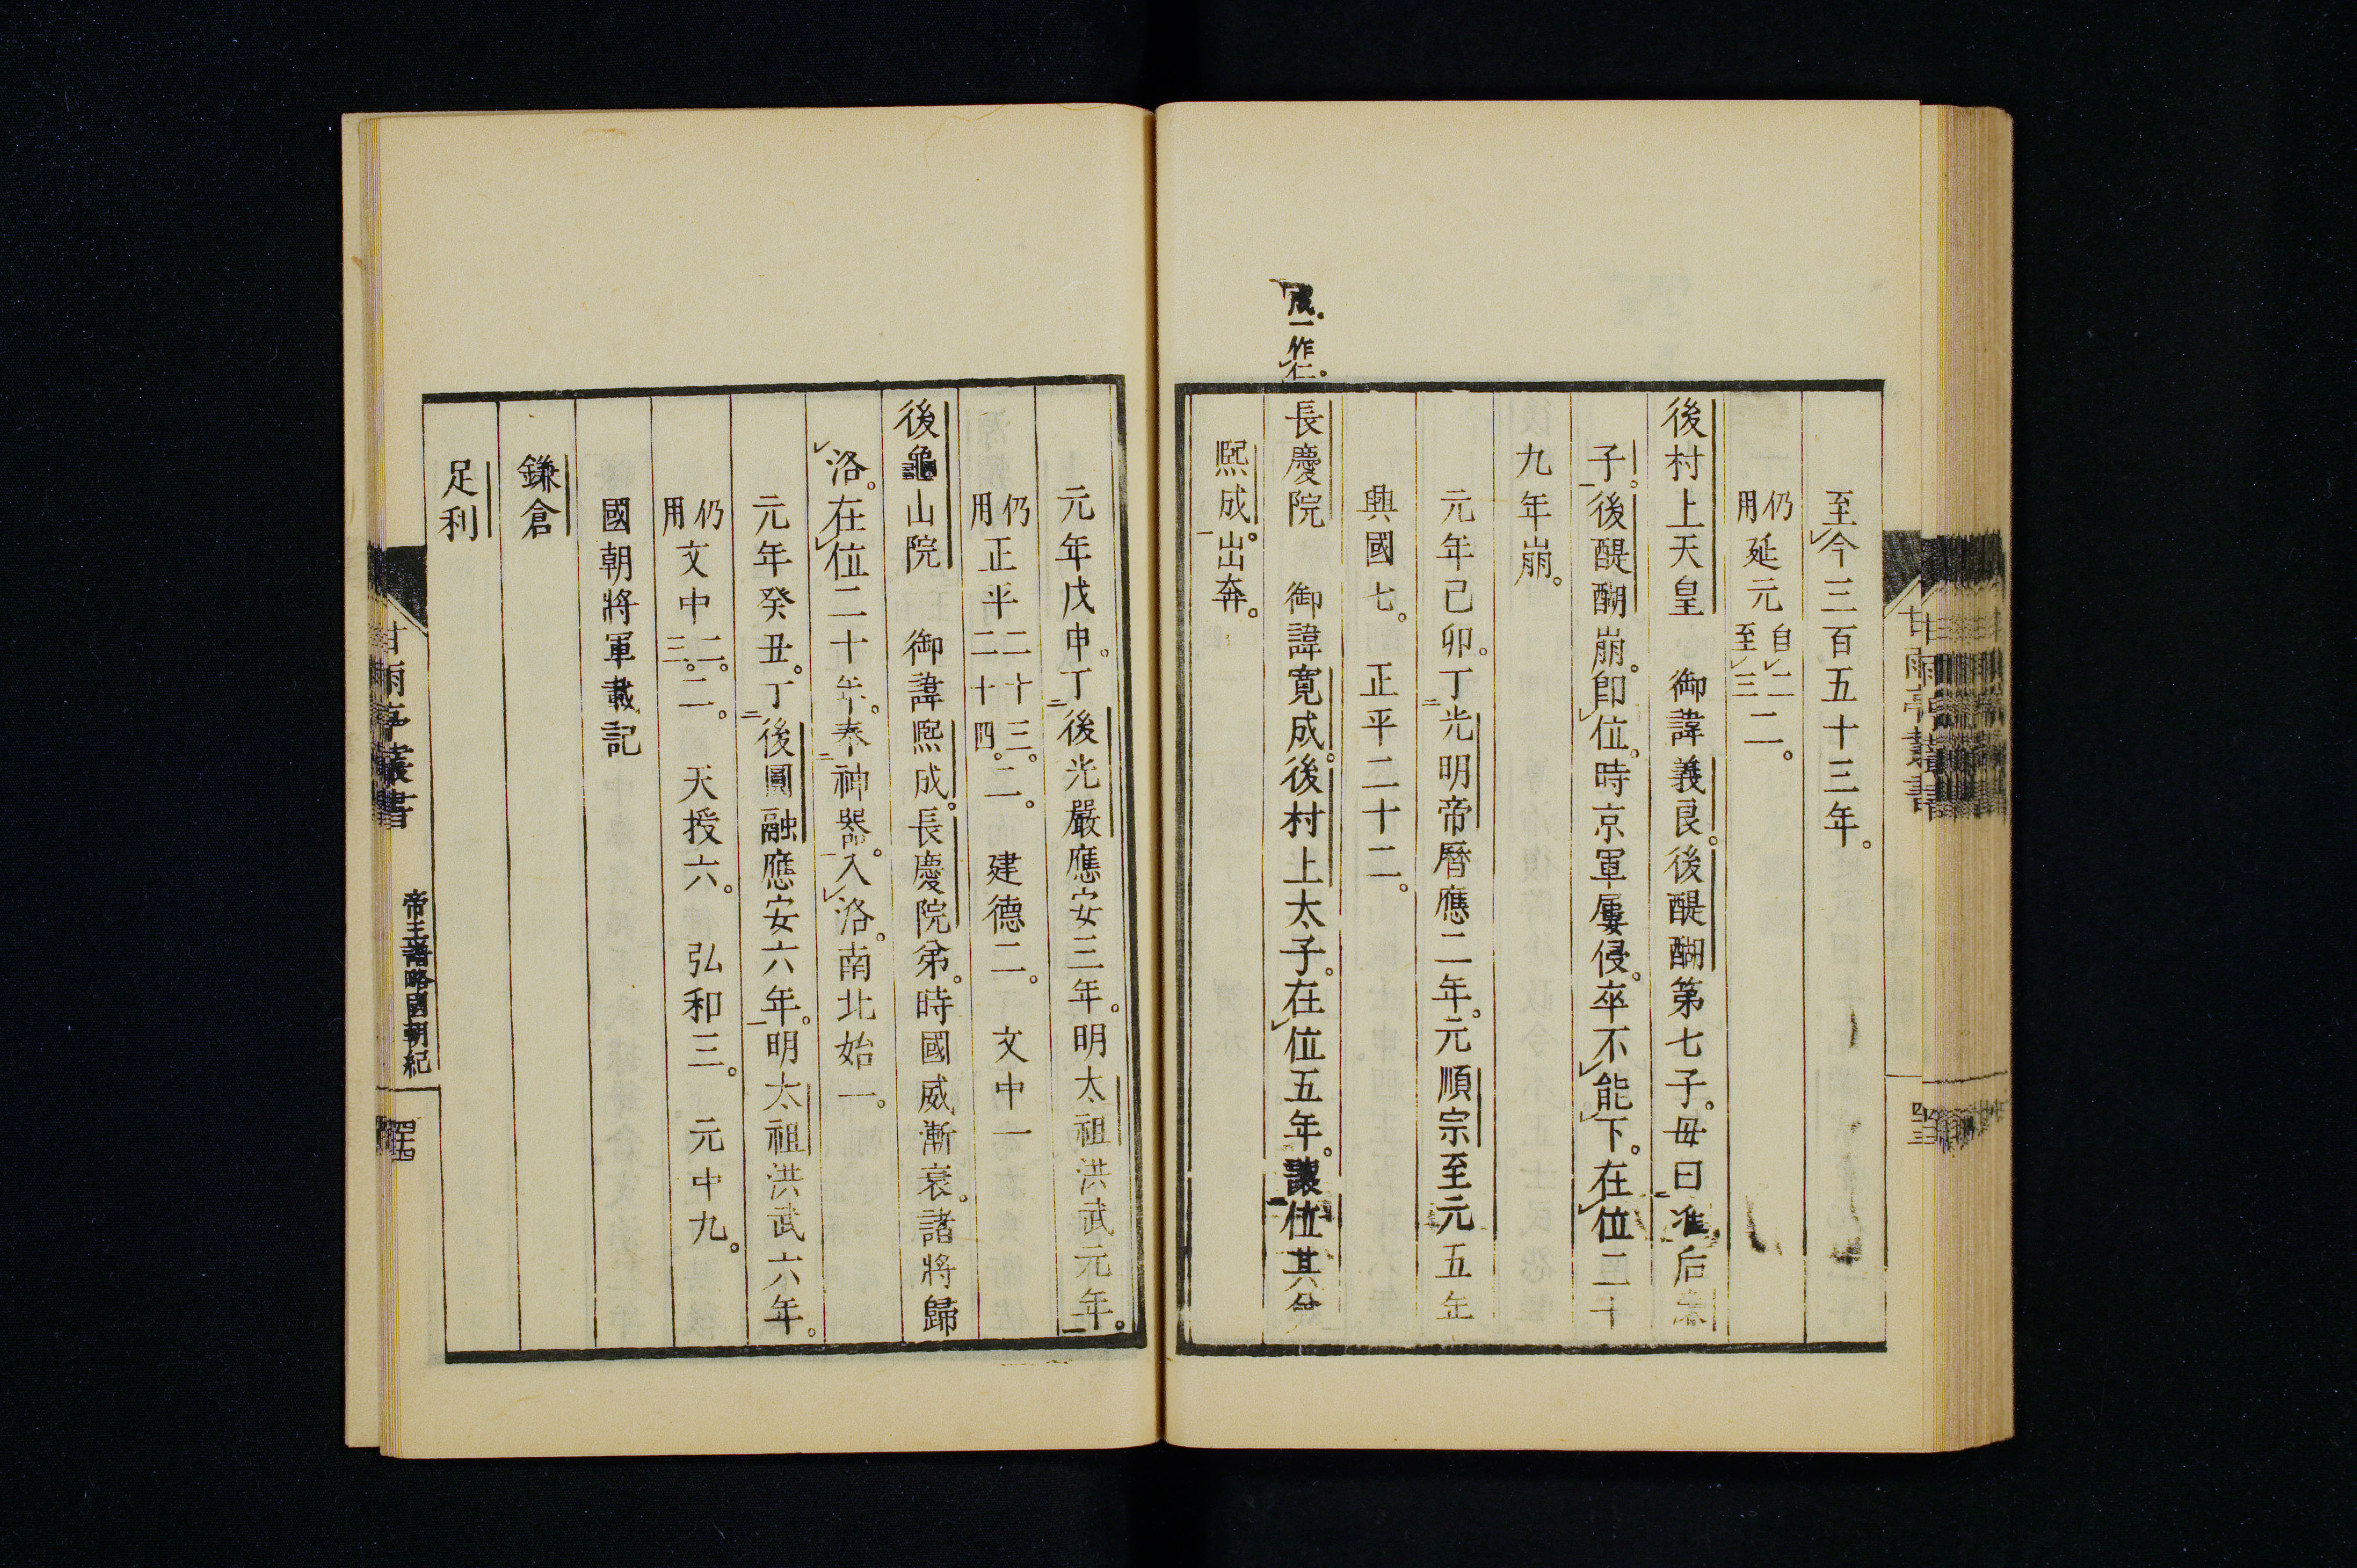 至今三百五十三年。
仍用延元自二至三二。
後村上天皇　御諱義良。後醍醐第七子。母曰准后
子。後醍醐崩。卽位。時京軍屢侵。卒不能下。在位二十
九年崩。
元年己卯。丁光明帝曆應二年。元順宗至元五年
興國七。　正平二十二。
成一作仁。
長慶院　御諱寬成。後村上太子。在位五年。讓位其
熙成。出奔。
元年戊申。丁後光嚴應安三年。明太祖洪武元年。
仍用正平二十三。二十四。二。　建德二。　文中一
後龜山院　御諱熙成。長慶院弟。時國威漸衰。諸將歸
洛。在位二十年。奉神器。入洛。南北始一。
元年癸丑。丁後圓融應安六年。明太祖洪武六年。
仍用文中二。三。二。　天授六。　弘和三。　元中九。
國朝將軍載記
鎌倉
足利
甘雨亭叢書
帝王譜略國朝紀
四十四
甘雨亭叢書
四十三